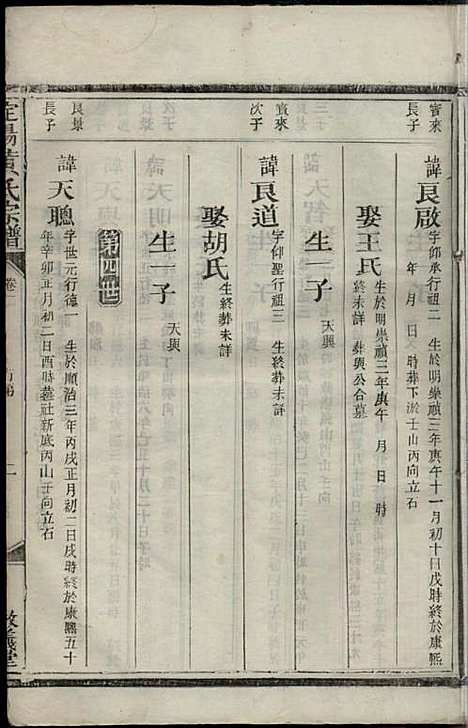 實來
長子
諱良啟
字仰承行祖二 生於明崇禎三年庚午十一月初十日戌時終於康熙
年 月 日 時葬下淤壬山丙向立石
娶王氏
生於明崇禎三年庚午 月 日 時
終未詳 葬與公合墓
生一子
天興
實來
次子
諱良道
字仰聖行祖三 生終葬未詳
娶胡氏
生終葬未詳
生一子
天興
第四世
良景
長子
諱天聰
字世元行德一 生於順治三年丙戌正月初二日戌時終於康熙五十
年辛卯正月初二日酉時葬社新底丙山壬向立石
黃氏宗譜
卷
二
敘義堂